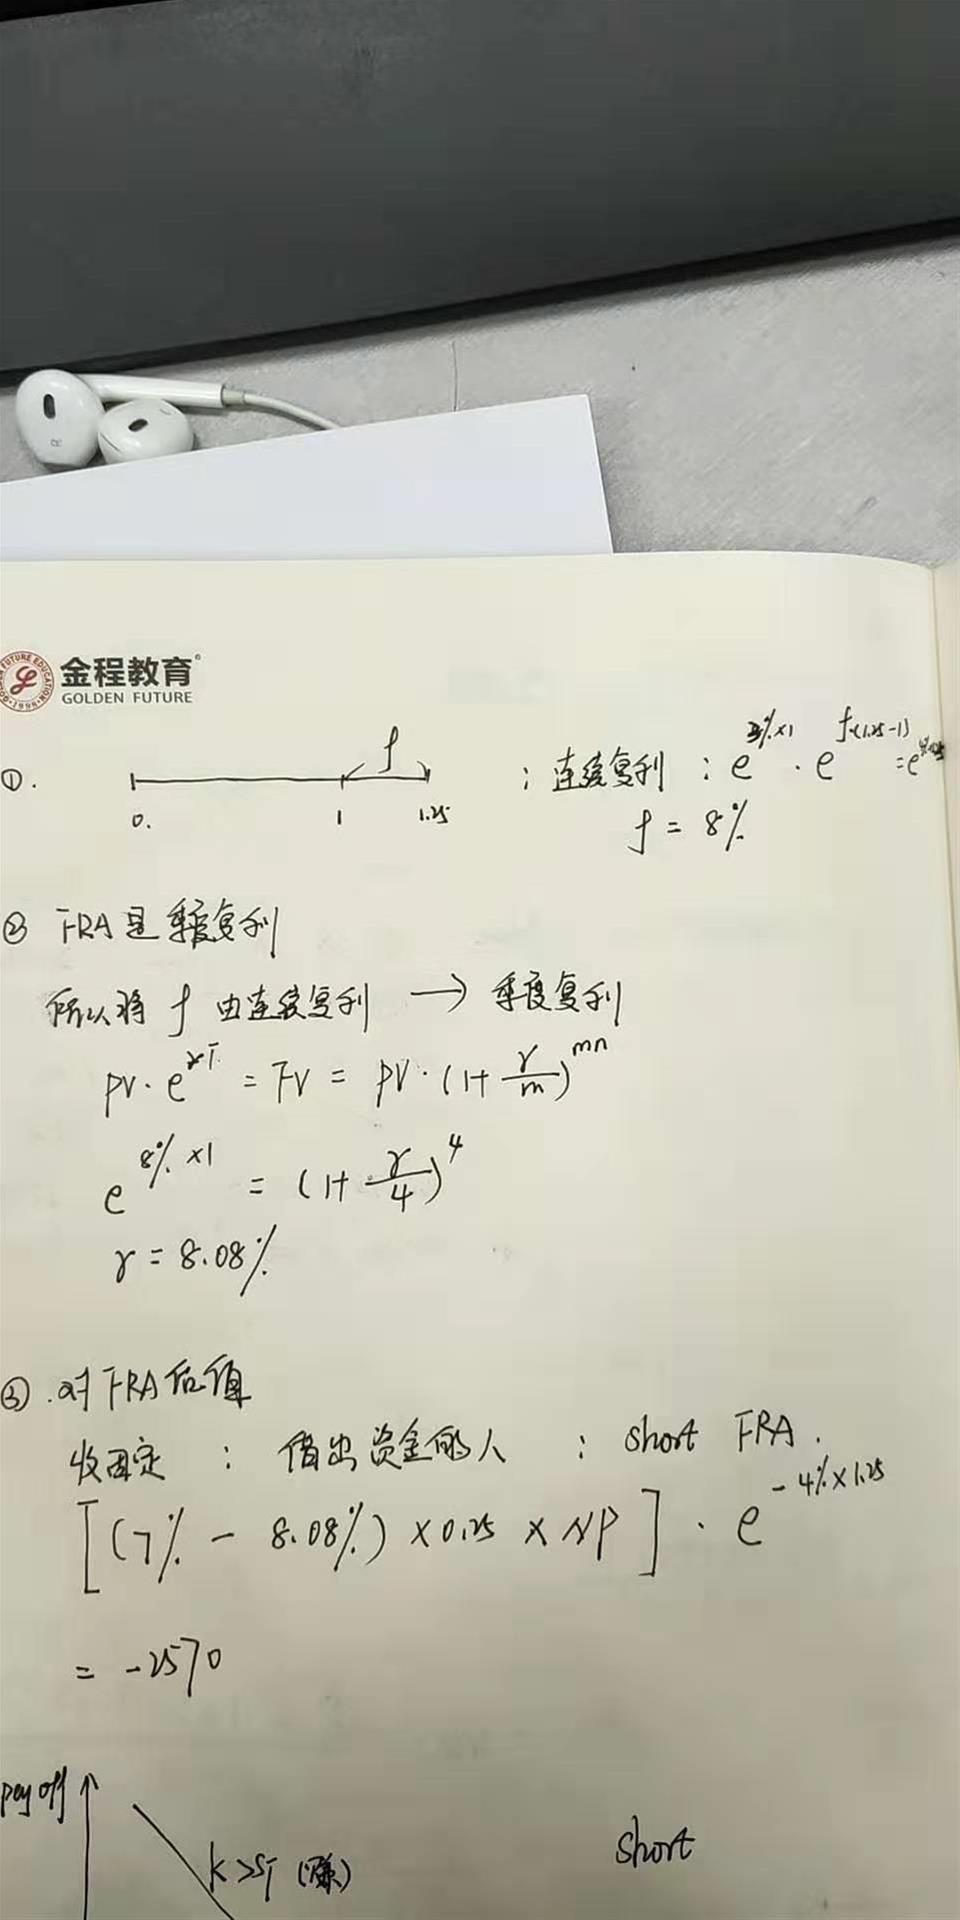 金程教育
GOLDEN FUTURE
①. 0. 1 1.25 f ; 连续复利 : e^{3%×1} · e^{f×(1.25-1)} = e
f = 8%
② FRA是季度复利
所以将 f 由连续复利 → 季度复利
PV·e^{rT} = FV = PV·(1+\frac{r}{m})^{mn}
e^{8%×1} = (1+\frac{r}{4})^4
r = 8.08%
③. 对FRA估值
收固定 : 借出资金的人 : short FRA.
[(7% - 8.08%) × 0.25 × NP] · e^{-4%×1.25}
= -2570
pay off
K>S_T (赚)
short